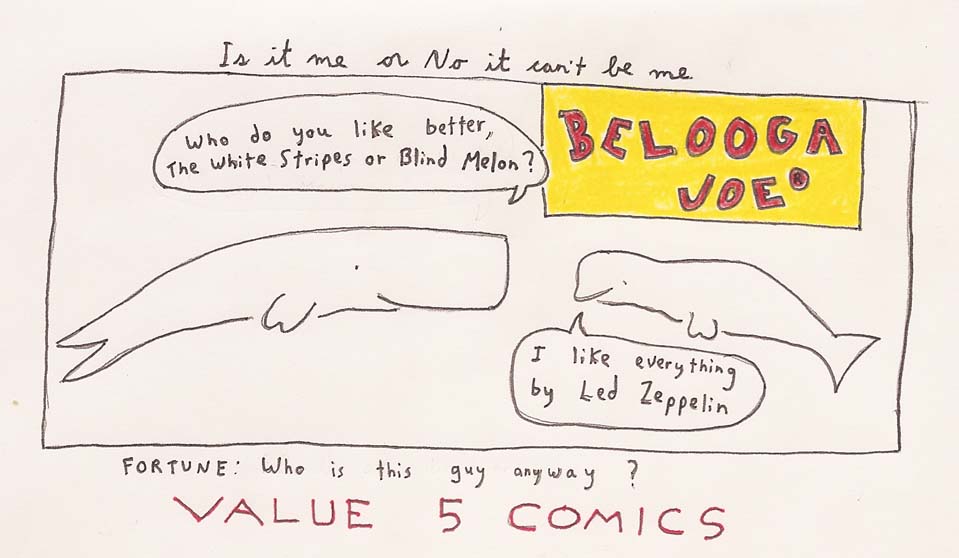 Is it me or No it can't be me
Who do you like better,
The White Stripes or Blind Melon?
BELOOGA
JOE®
I like everything
by Led Zeppelin
FORTUNE: Who is this guy anyway?
VALUE 5 COMICS